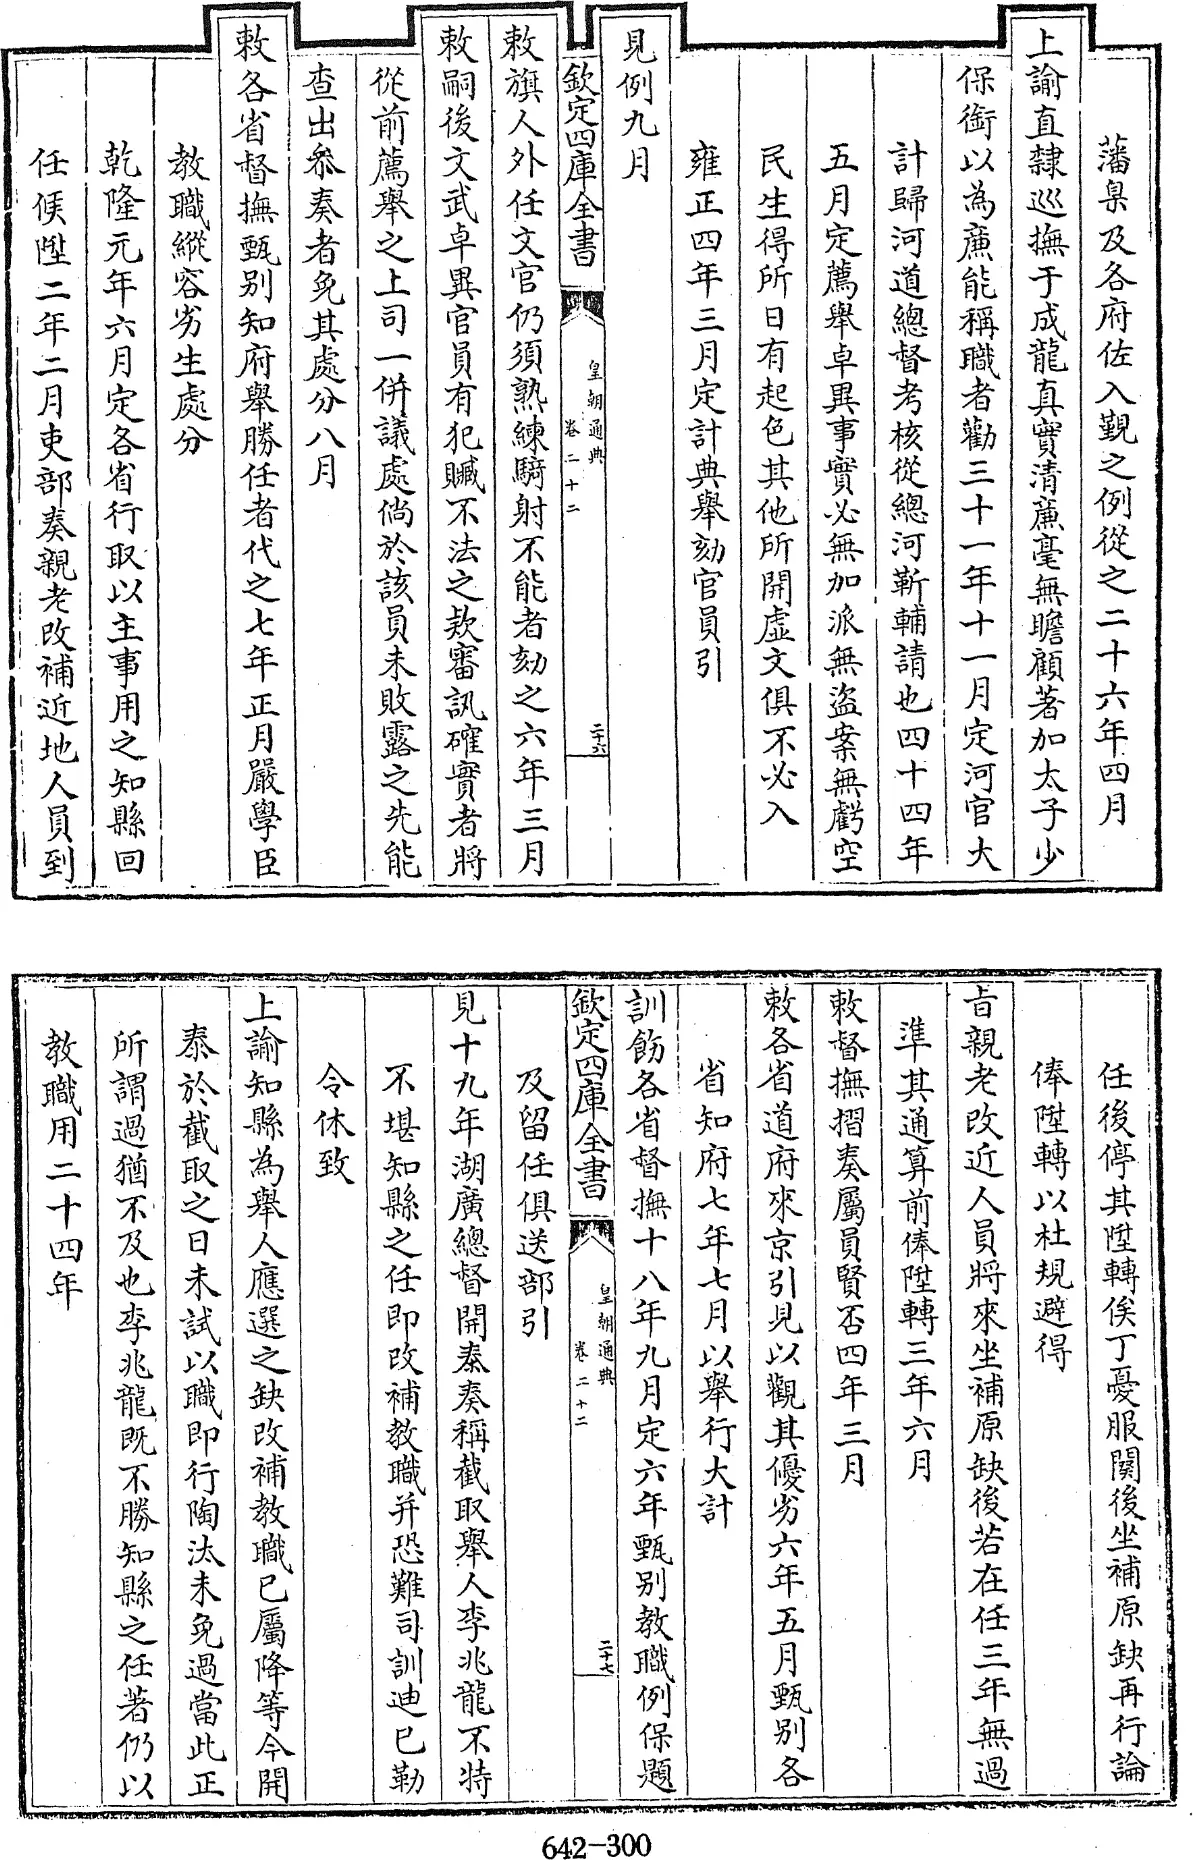 藩臬及各府佐入覲之例從之二十六年四月
上諭直隸巡撫于成龍真實清廉毫無瞻顧著加太子少
保銜以為廉能稱職者勸三十一年十一月定河官大
計歸河道總督考核從總河靳輔請也四十四年
五月定薦舉卓異事實必無加派無盜案無虧空
民生得所日有起色其他所開虛文俱不必入
雍正四年三月定計典舉劾官員引
見例九月
欽定四庫全書
皇朝通典
卷二十二
二十六
敕旗人外任文官仍須熟練騎射不能者劾之六年三月
敕嗣後文武卓異官員有犯贓不法之款審訊確實者將
從前薦舉之上司一併議處倘於該員未敗露之先能
查出叅奏者免其處分八月
敕各省督撫甄别知府舉勝任者代之七年正月嚴學臣
教職縱容劣生處分
乾隆元年六月定各省行取以主事用之知縣回
任候陞二年二月吏部奏親老改補近地人員到
任後停其陞轉俟丁憂服闋後坐補原缺再行論
俸陞轉以杜規避得
旨親老改近人員將來坐補原缺後若在任三年無過
準其通算前俸陞轉三年六月
敕督撫摺奏屬員賢否四年三月
敕各省道府來京引見以觀其優劣六年五月甄别各
省知府七年七月以舉行大計
訓飭各省督撫十八年九月定六年甄别教職例保題
欽定四庫全書
皇朝通典
卷二十二
二十七
及留任俱送部引
見十九年湖廣總督開泰奏稱截取舉人李兆龍不特
不堪知縣之任即改補教職并恐難司訓迪已勒
令休致
上諭知縣為舉人應選之缺改補教職已屬降等今開
泰於截取之日未試以職即行陶汰未免過當此正
所謂過猶不及也李兆龍既不勝知縣之任著仍以
教職用二十四年
642-300